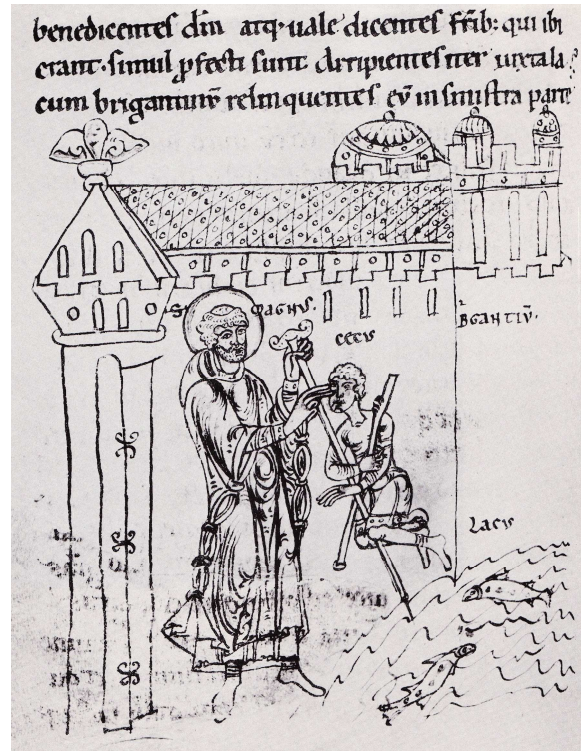 benedicentes dm̄ atq; uale dicentes fr̄ib: qui ibi
erant. simul ꝓfecti sunt Arripientes iter iuxta la
cum brigantinū relinquentes eū in sinistra parte
S MAGNVS.
CECVS
BGANTIV̄.
LACVS